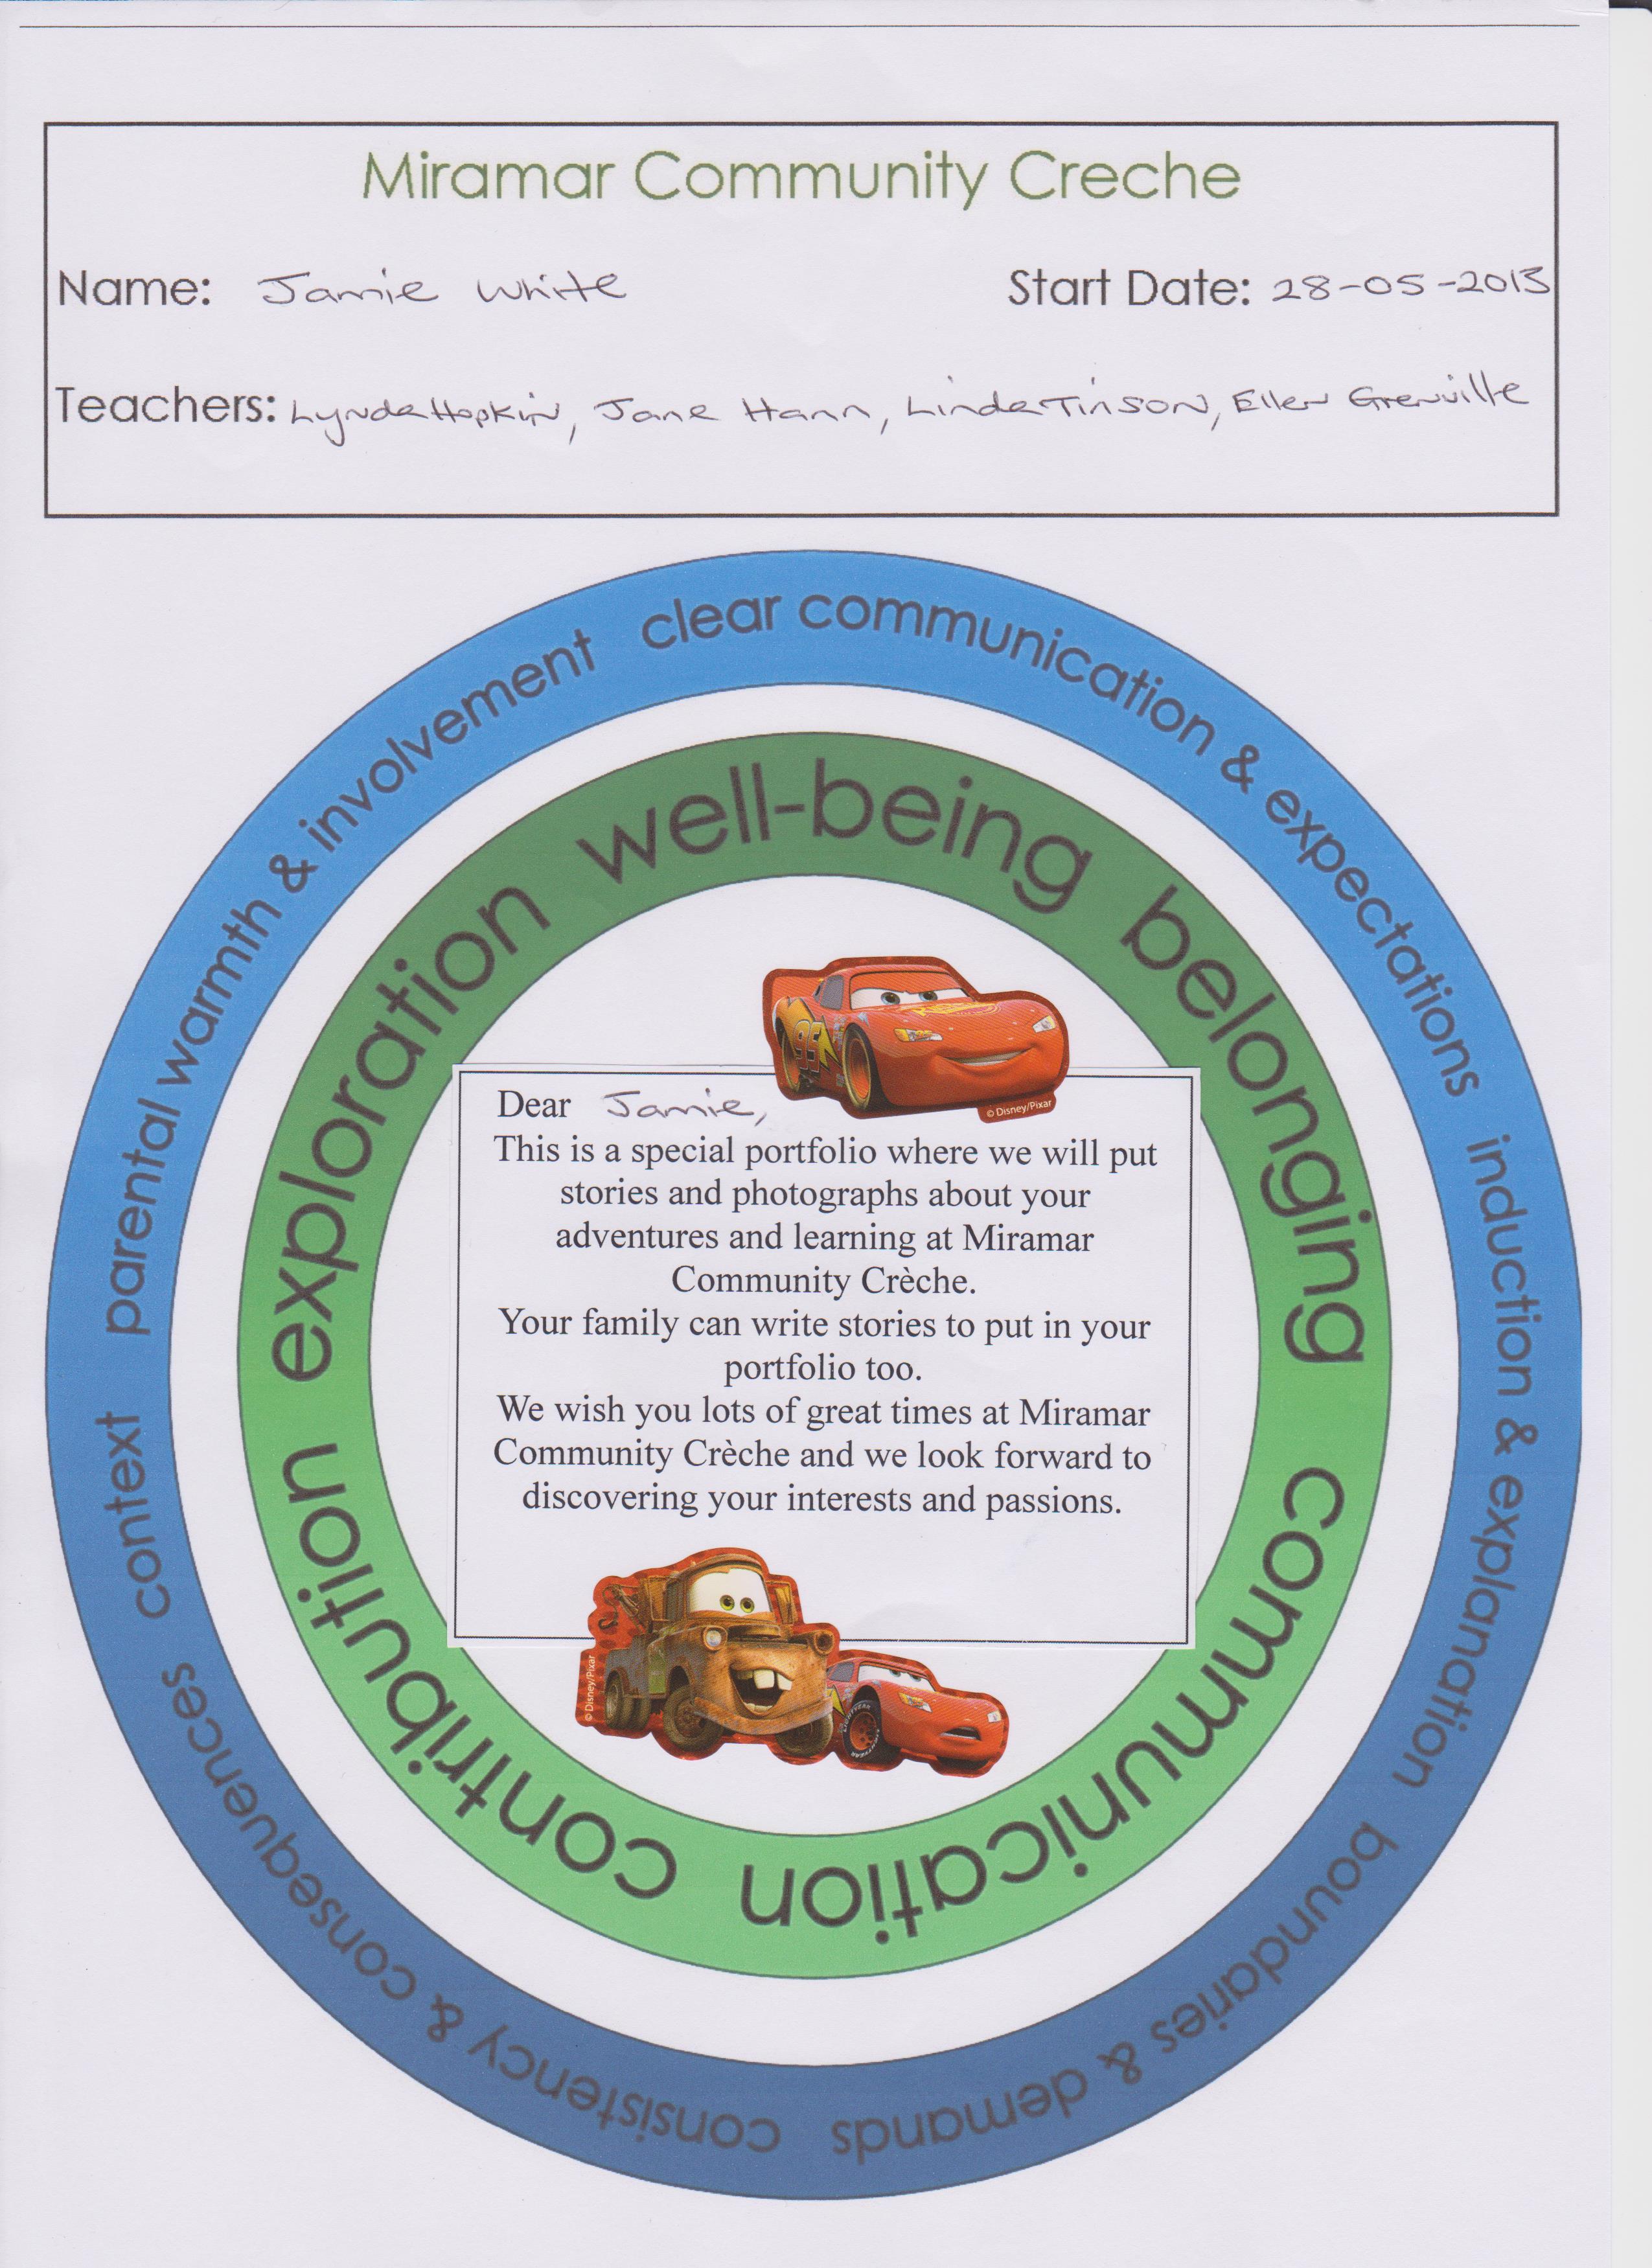 Miramar Community Creche
Name: Jamie White Start Date: 28-05-2013
Teachers: Lynda Hopkin, Jane Hann, Linda Tinson, Ellen Grenville
parental warmth & involvement
clear communication & expectations
induction & explanation
boundaries & demands
consistency & consequences
context
exploration
well-being
belonging
communication
contribution
95
© Disney/Pixar
Dear Jamie,
This is a special portfolio where we will put
stories and photographs about your
adventures and learning at Miramar
Community Crèche.
Your family can write stories to put in your
portfolio too.
We wish you lots of great times at Miramar
Community Crèche and we look forward to
discovering your interests and passions.
© Disney/Pixar